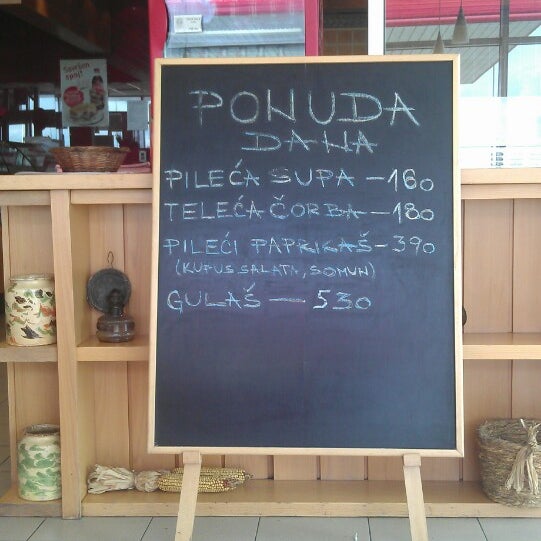 PONUDA
DANA
PILEĆA SUPA – 160
TELEĆA ČORBA – 180
PILEĆI PAPRIKAŠ – 390
(KUPUS SALATA, SOMUN)
GULAŠ — 530